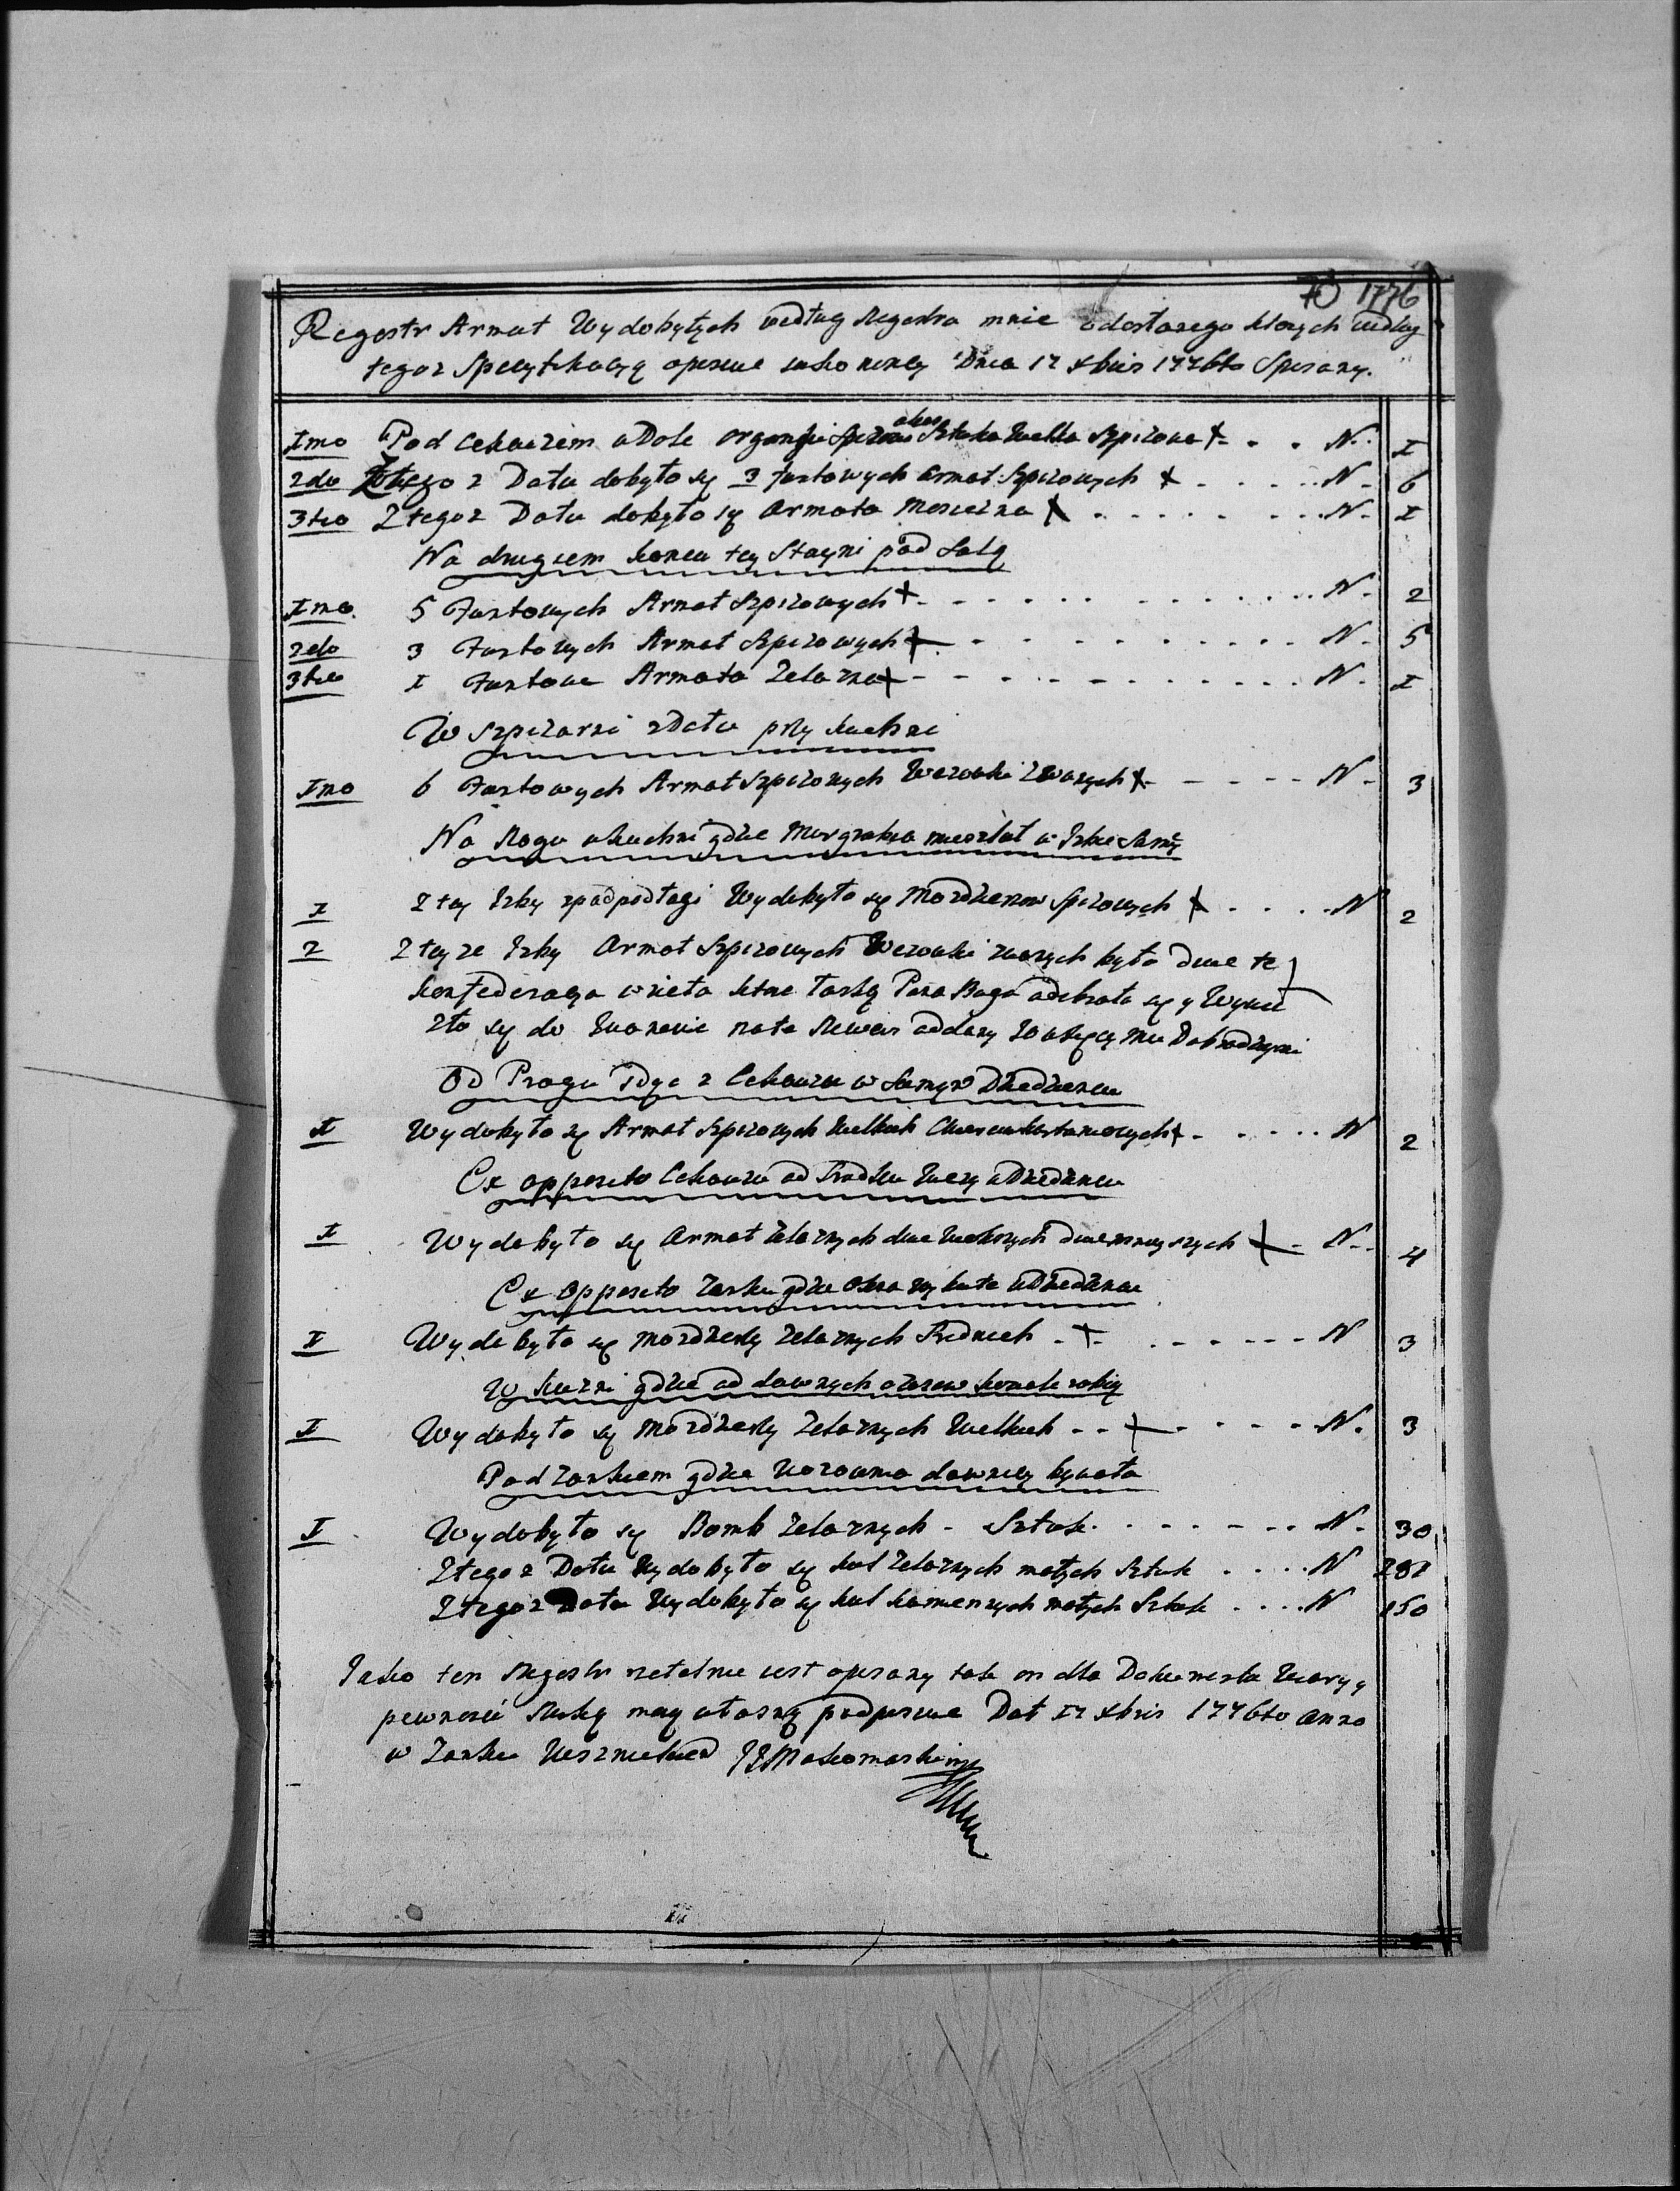 70 1776
Regestr Armat Wydobytych według Regestra mnie któnych według
tegoz Specyfikacyą opisuie Dnia 17 Xbris 1776to Spisany.
Imo Pod Cekauzem w Dole Sztuka Wielka Szpizowa + . . N. I
2do Ztego z Dołu dobyło sę 3 funtowych armat Szpizowych + . . . . N. 6
3tio Z tegoz Dołu dobyło sę Armata Mosiezna + . . . . N. I
Na drugiem koncu tey Stayni pod Salą
Imo. 5 Funtowych Armat Szpizowych + . . . . N. 2
2do 3 Funtowych Armat Szpizowych + . . . . N. 5
3tio I Funtowa Armata Zelazna + . . . . N. I
W Szpizarni z Dołu przy kuchni
Imo 6 Funtowych Armat Szpizowych Wezowki Zwanych + - - - N. 3
Na Rogu w kuchni gdzie Murgrabia mieszkał w Izbie Samey
I Z tey Izby zpod podłogi Wydobyło sę Mozdzerzow Spizowych + . . . . N 2
2 Z teyze Izby Armat Szpizowych Wezowki zwanych było dwie te
konfederacya wzieła ktore łaską Pana Boga odebrała sę y
sę do na to Rewers oddany Dobrodzieiowi
Od Progu Idąc z Cekauzu w Samym Dziedzencu
I Wydobyło sę Armat Szpizowych Wielkich + . . . . N 2
Ex opposito Cekauzu od Srodku Wiezy w Dziedzencu
I Wydobyło sę Armat Zelaznych dwie wiekszych dwie mnieyszych + - N. 4
Ex Opposito Zamku gdzie Okno wykute w Dziedzencu
I Wydobyło sę Mozdzerzy Zelaznych Srednich . + . - - - N 3
W kuzni gdzie od dawnych czasow konale robią
I Wydobyło sę Mozdzerzy Zelaznych Wielkich . . + - - - N. 3
Pod Zamkiem gdzie Wozownia dawniey bywała
I Wydobyło sę Bomb Zelaznych - Sztuk . . . . N. 30
Z tegoz Dołu Wydobyło sę kul Zelaznych małych Sztuk . . . . N 281
Z tegoz Dołu Wydobyło sę kul kamiennych małych Sztuk . . . . N 150
Jako ten Regestr rzetelnie iest opisany tak on dla Dokumentu Wiary y
pewnosci Ręką mą własną podpisuie Dat 17 Xbris 1776to anno
w Zamku